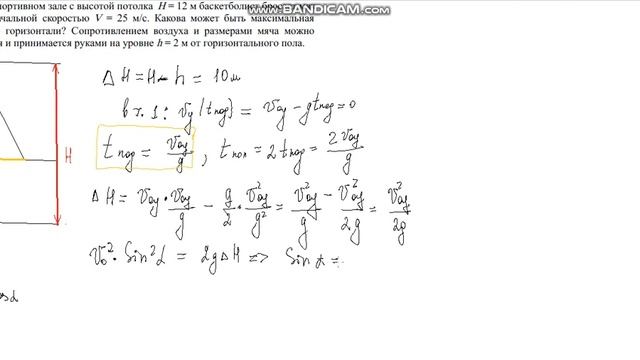 WWW.BANDICAM.COM
портивном зале с высотой потолка H = 12 м баскетболист
чальной скоростью V = 25 м/с. Какова может быть максимальная
горизонтали? Сопротивлением воздуха и размерами мяча можно
я и принимается руками на уровне h = 2 м от горизонтального пола.
ΔH = H - h = 10м
в т. 1: Vy (tпод) = Voy - gtпод = 0
tпод = Voy/g , tпол = 2 tпод = 2Voy/g
H
ΔH = Voy · Voy/g - g/2 · Voy²/g² = Voy²/g - Voy²/2g = Voy²/2g
Vo² · Sin²α = 2gΔH => Sin α =
sα